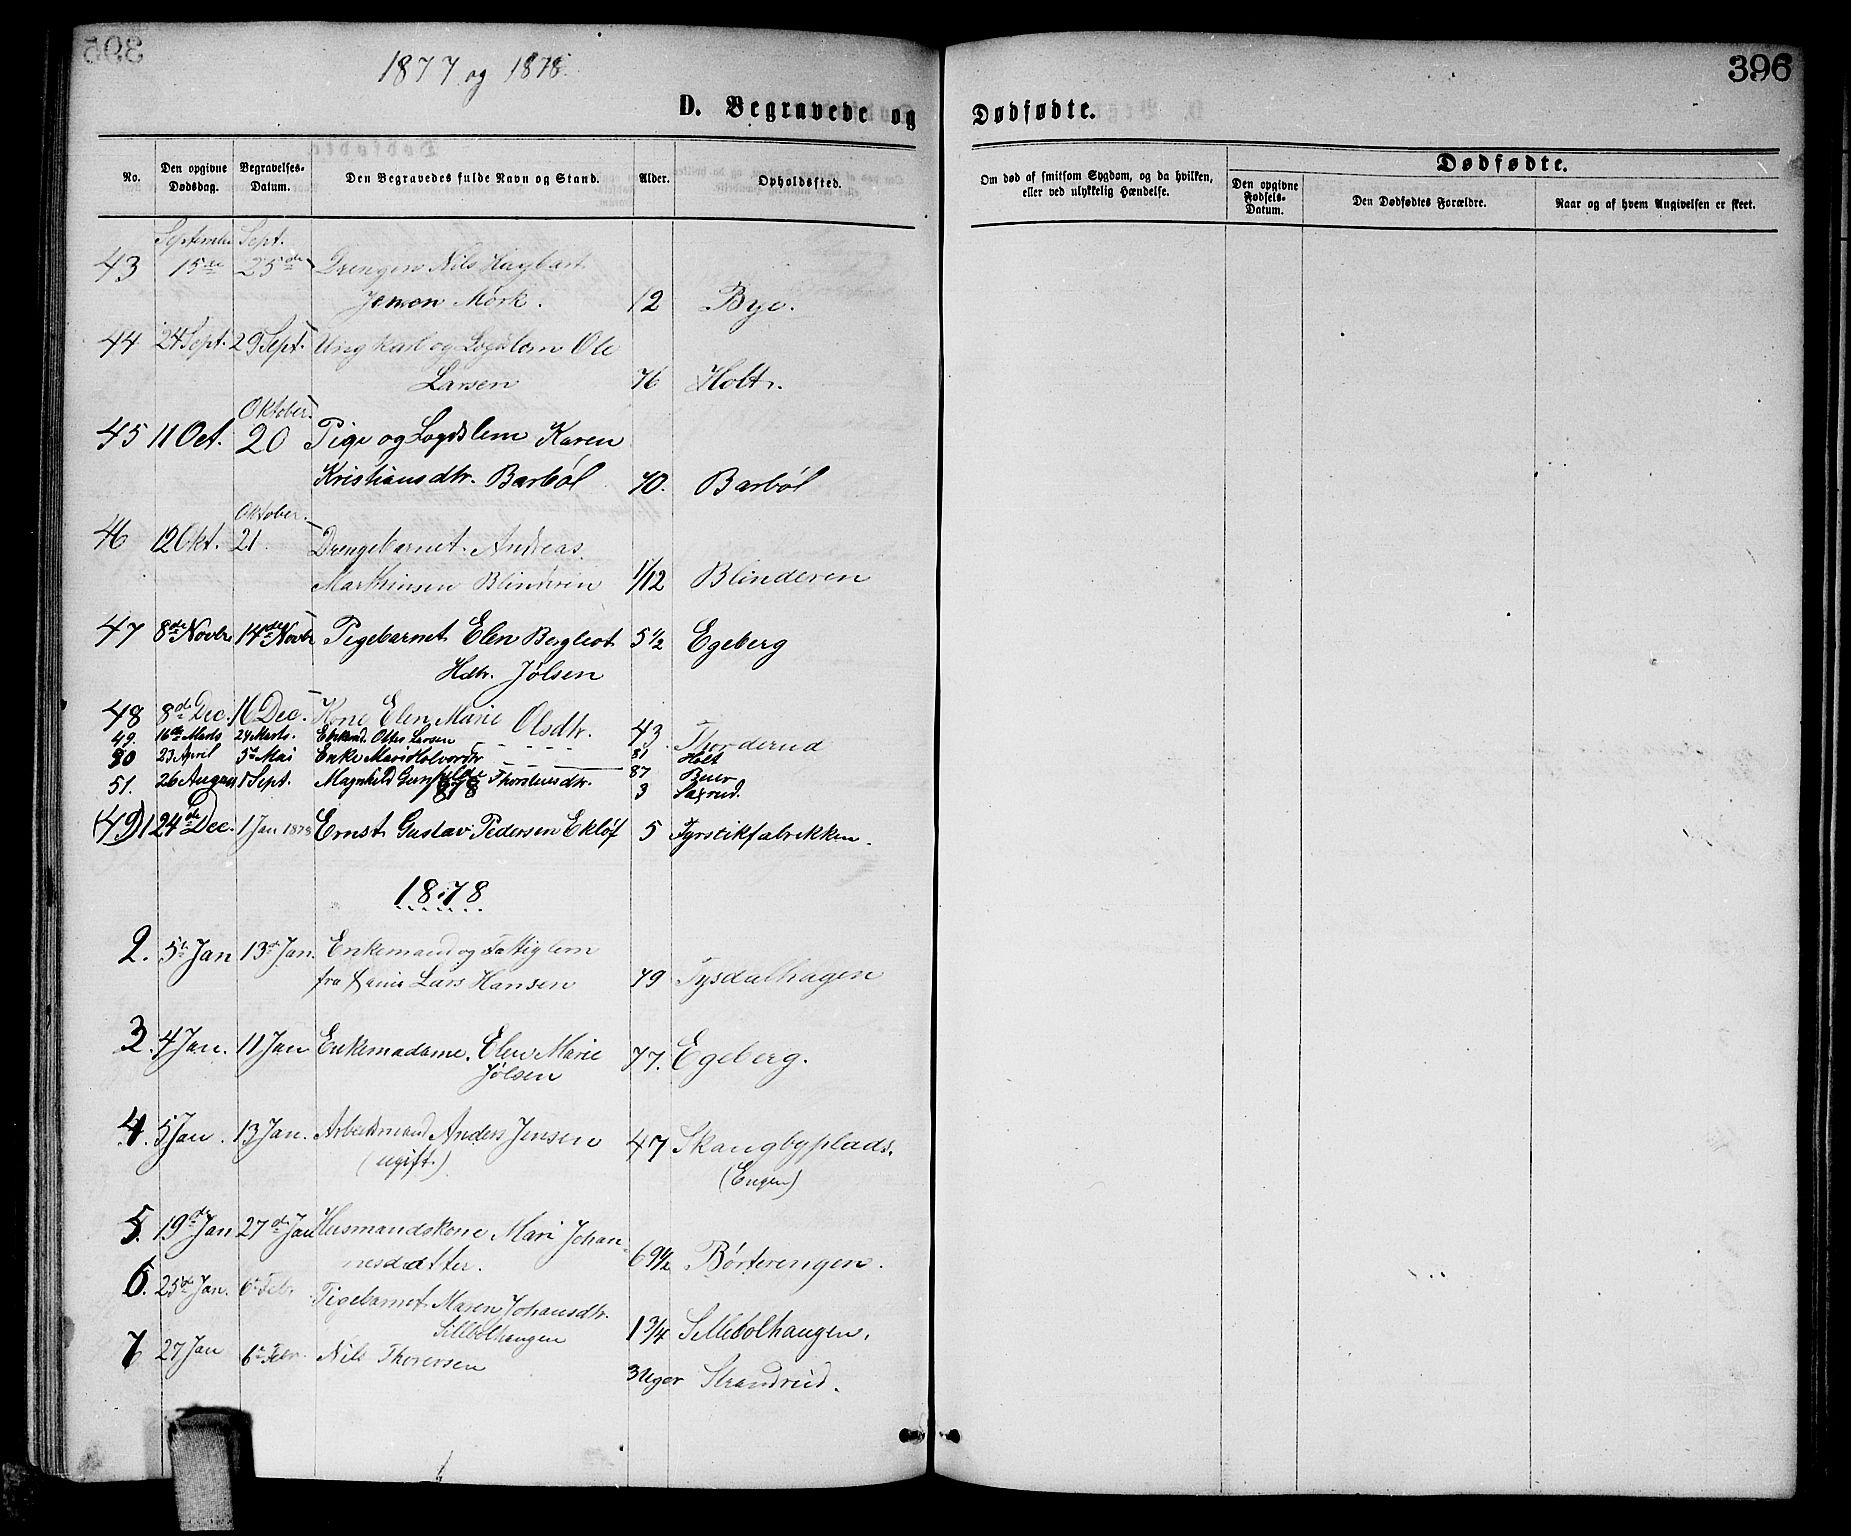 1877 og 1878.
396
D. Begravede og Dødfødte.
No. Den opgivne Dødsdag. Begravelses-Datum. Den Begravedes fulde Navn og Stand. Alder. Opholdssted. Om død af smitsom Sygdom, og da hvilken, eller ved ulykkelig Hændelse. Dødfødte. Den opgivne Fødsels-Datum. Den Dødfødtes Forældre. Naar og af hvem Angivelsen er skeet.
Sept.
43 15de 25de Drengen Nils Hagbart
Jensen Mørk. 12 Bye.
44 24 Sept. 29 Sept. Ungkarl og Logdslem Ole
Larsen 76 Holt.
Oktober.
45 11 Oct. 20 Pige og Logdslem Karen
Kristiansdtr. Barbøl 70. Barbøl
Oktober.
46 12 Okt. 21. Drengebarnet Andreas
Marthinsen Blinderen 1/12 Blinderen
47 8de Novbr 14de Novbr Pigebarnet Elen Bergleot 5 1/2 Egeberg
Hdtr. Jølsen
48 8de Dec. 16 Dec. Kone Elen Marie Olsdtr. 43. Thorderud
49. 16de Marts 24 Marts. Otter Larsen 81 Holt
50 23 April 5te Mai Enke Mari Halvordtr 87
51. 26 August 1 Sept. Magnhild Thorstensdtr. 3 Saxrud.
(49) 1 24de Dec. 1 Jan 1878 Ernst Gustav Pedersen Ekløf 5 Fyrstikfabrikken.
1878
2. 5te Jan 13de Jan. Enkemand og Fattiglem
fra Lars Hansen 79 Tysdalhagen
3. 4 Jan. 11 Jan Enkemadame. Elen Marie 77. Egeberg.
Jølsen
4. 5 Jan. 13 Jan. Arbeidsmand Anders Jensen 47 Skangbyplads.
(ugift.) (Engen)
5. 19de Jan 27de Jan Husmandskone Mari Johan-
nesdatter. 69 1/2 Børterengen.
6. 25de Jan. 6te Febr Pigebarnet Maren Johansdtr.
Sillebolhaugen 1 3/4 Sillebolhaugen.
7 27 Jan 6te Febr. Nils Thorersen 3 Uger Strandrud.